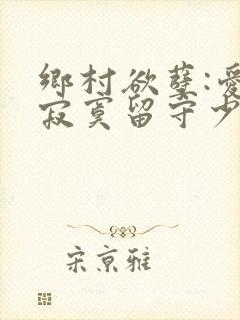 鄉村欲孽:愛
寂寞留守少
宋京雅